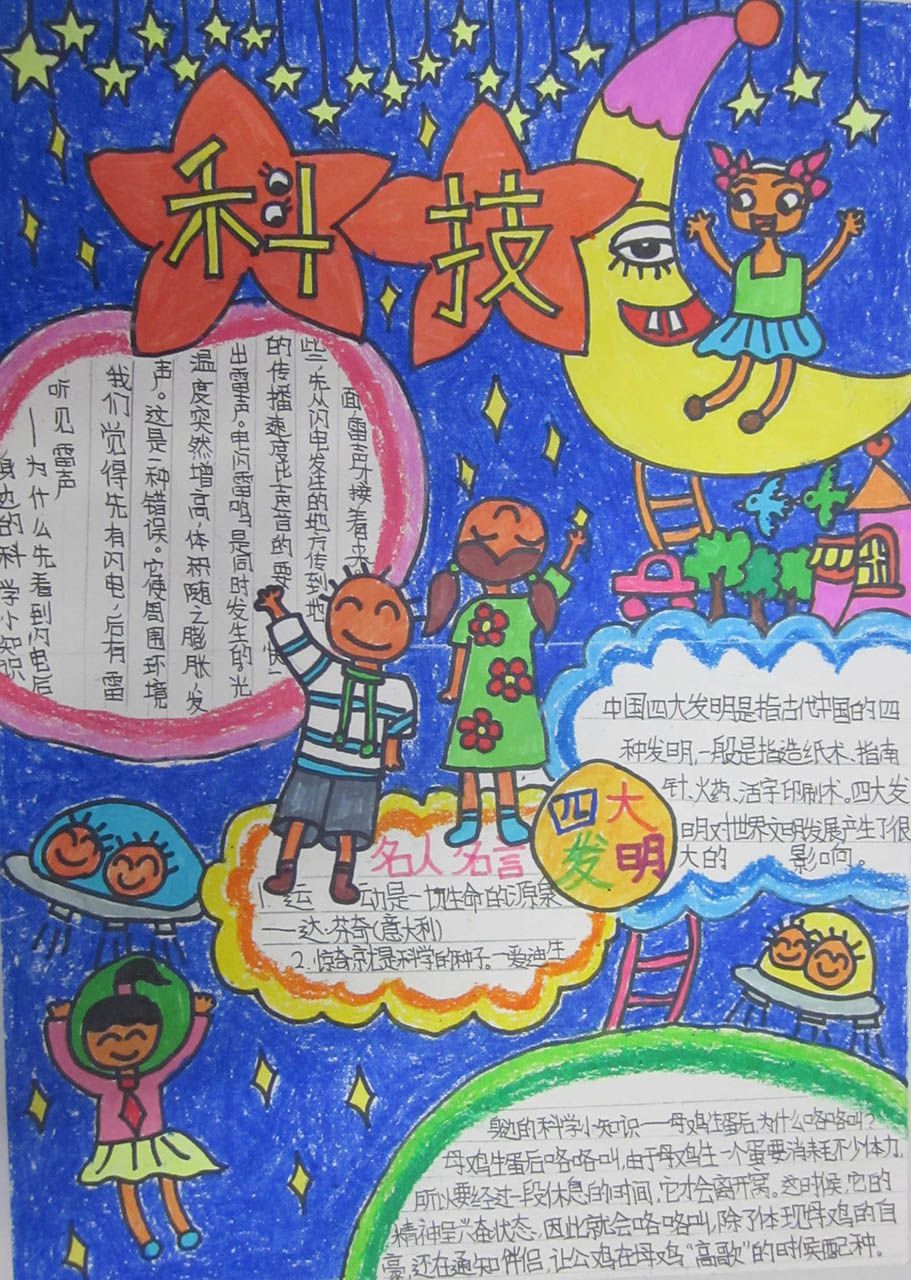 科技
身边的科学小知识
——为什么先看到闪电后
听见雷声
我们觉得先有闪电,后有雷
声。这是一种错误。它使周围环境
温度突然增高,体积随之膨胀,发
出雷声。电闪雷鸣是同时发生的。光
的传播速度比声音的要快
些,先从闪电发生的地方传到地
面,雷声才接着来
中国四大发明是指古代中国的四
种发明,一般是指造纸术、指南
针、火药、活字印刷术。四大发
明对世界文明发展产生了很
大的 影响。
四大
发明
名人名言
1、运 动是一切生命的源泉
——达·芬奇(意大利)
2、惊奇就是科学的种子。—爱迪生
身边的科学小知识——母鸡生蛋后,为什么咯咯叫?
母鸡生蛋后咯咯叫,由于母鸡生一个蛋要消耗不少体力,
所以要经过一段休息的时间,它才会离开窝。这时候,它的
精神呈兴奋状态,因此就会咯咯叫,除了体现母鸡的自
豪,还在通知伴侣,让公鸡在母鸡“高歌”的时候配种。